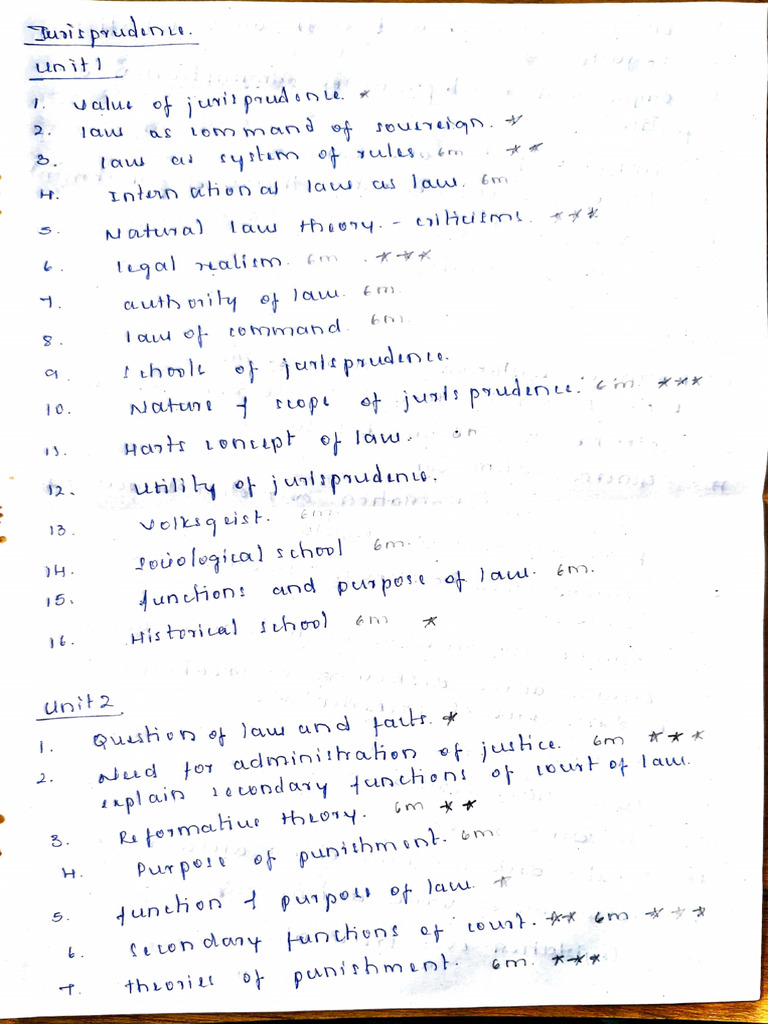 Jurisprudence.
Unit 1
1. Value of jurisprudence. *
2. law as command of sovereign. *
3. law as system of rules. 6m **
4. International law as law. 6m
5. Natural law theory. - criticisms. ***
6. legal realism. 6m ***
7. authority of law. 6m
8. law of command. 6m
9. schools of jurisprudence.
10. Nature & scope of jurisprudence. 6m ***
11. Harts concept of law.
12. utility of jurisprudence.
13. Volksgeist. 6m
14. sociological school 6m
15. functions and purpose of law. 6m.
16. Historical school 6m *
Unit 2
1. Question of law and facts. *
2. Need for administration of justice. 6m ***
explain secondary functions of court of law.
3. Reformative theory. 6m **
4. Purpose of punishment. 6m
5. function & purpose of law. *
6. secondary functions of court. ** 6m ***
7. theories of punishment. 6m. ***